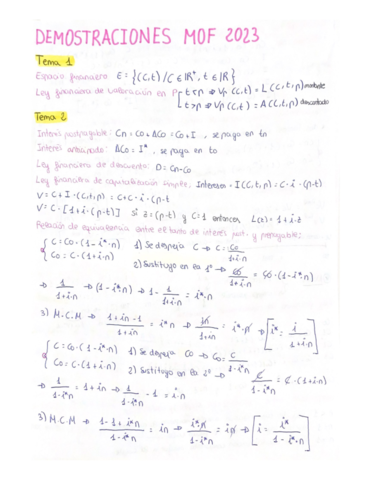 DEMOSTRACIONES MOF 2023
Tema 1
Espacio financiero E = {(C,t) / C ∈ IR⁺, t ∈ IR}
Ley financiera de valoración en P [ t<p ⇒ Vp (C,t) = L (C,t,p) montante
t>p ⇒ Vp (C,t) = A (C,t,p) descontado
Tema 2
Interés postpagable: Cn = Co + ΔCo = Co + I, se paga en tn
Interés anticipado: ΔCo = I*, se paga en to
Ley financiera de descuento: D = Cn - Co
Ley financiera de capitalización simple. Intereses → I (C,t,p) = C · i · (p-t)
V = C + I · (C,t,p) = C + C · i · (p-t)
V = C · [1 + i · (p-t)] Si z = (p-t) y C = 1 entonces L(z) = 1 + i · z
Relación de equivalencia entre el tanto de interés post. y prepagable:
{ C = Co · (1 - i* · n) 1) Se despeja C → C = Co / 1+i·n
Co = C · (1 + i·n) 2) Sustituyo en la 1º → Co / 1+i·n = Co · (1 - i* · n)
→ 1 / 1+i·n → (1 - i* · n) → 1 - 1 / 1+i·n = i* · n
3) M.C.M → 1 + in - 1 / 1+i·n = i* n → in / 1+i·n = i* · n → [ i* = i / 1+i·n ]
{ C = Co · (1 - i* · n) 1) Se despeja Co → Co = C / 1-i*·n
Co = C · (1 + i·n) 2) Sustituyo en la 2º → C / 1-i*·n = C · (1 + i·n)
→ 1 / 1-i*·n = 1 + i·n → 1 / 1-i*·n - 1 = i·n
3) M.C.M → 1 - 1 + i*n / 1-i*·n = in → i*n / 1-i*·n = in → [ i = i* / 1-i*·n ]